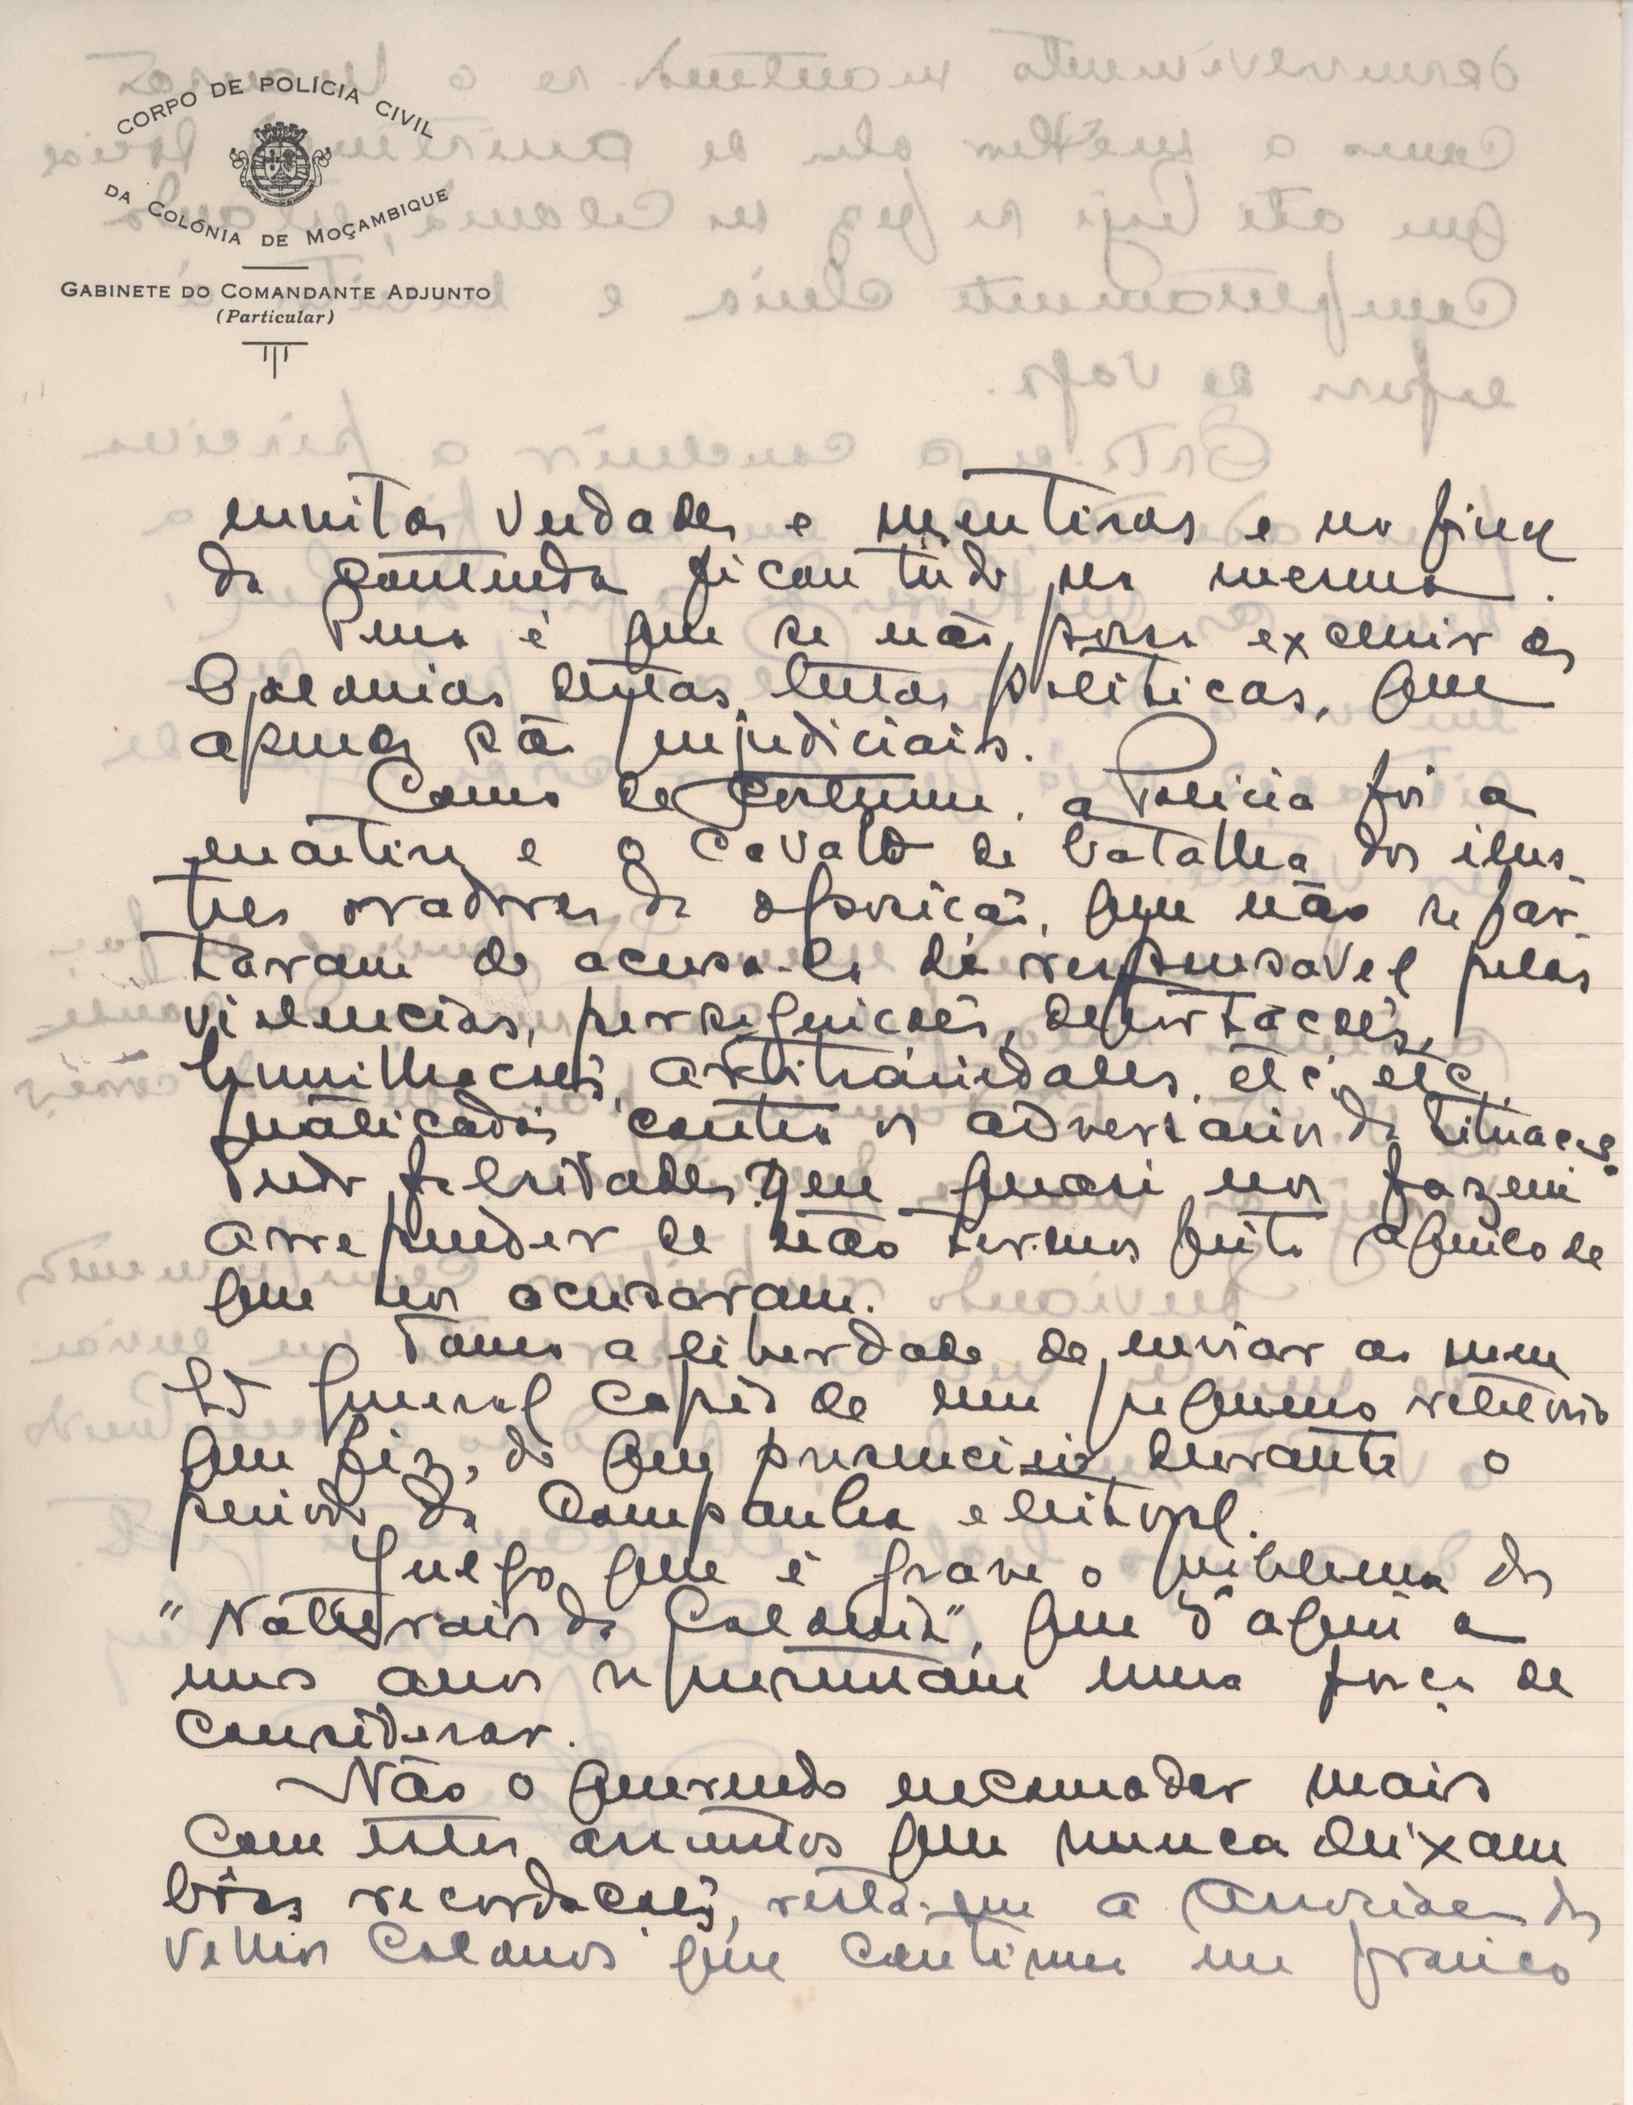 CORPO DE POLÍCIA CIVIL
DA COLÓNIA DE MOÇAMBIQUE
GABINETE DO COMANDANTE ADJUNTO
(Particular)
muitas verdades e mentiras e no final
da contenda ficou tudo na mesma.
Pena é que se não possa excluir as
Colonias destas lutas politicas, que
apenas são prejudiciais.
Como de costume, a Policia foi a
martir e o cavalo de batalha dos ilus-
tres oradores da oposição, que não se far-
taram de acusa-la de responsavel pelas
violencias, perseguições, deportações,
humilhações, arbitrariedades, etc., etc.,
praticadas contra os adversarios da Situação.
Tudo falsidades que quasi nos fazem
arrepender de não termos feito aquilo de
que nos acusaram.
Tomo a liberdade de enviar ao meu
General copia de um pequeno relatorio
que fiz, do que presenciei durante o
periodo da Campanha eleitoral.
Julgo que é grave o problema dos
"Naturais da Colonia", que d'aqui a
uns anos representam uma força de
considerar.
Não o querendo incomodar mais
com estes assuntos que nunca deixam
bôas recordações, resta-me a dos
velhos Colonos que continua em franco